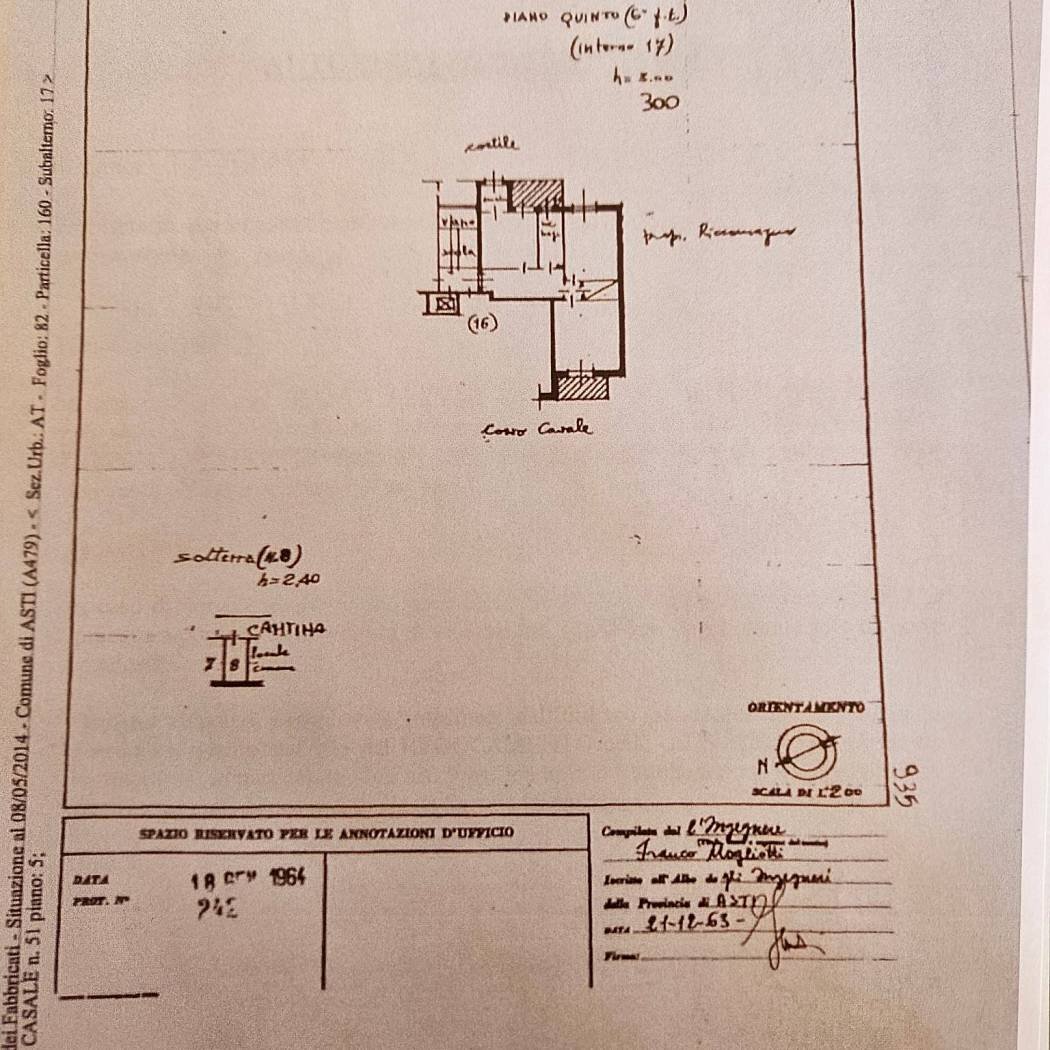 PIANO QUINTO (6° f.t.)
(interno 17)
h= 3.00
300
cortile
vano
scala
prop. Riccomagno
(16)
Corso Casale
sotterra (n.8)
h=2,40
CANTINA
7 8 locale
comune
ORIENTAMENTO
N
SCALA DI 1:200
935
SPAZIO RISERVATO PER LE ANNOTAZIONI D'UFFICIO
DATA 18 GEN 1964
PROT. N° 942
Compilata dal l'Ingegnere
Franco Mogliotti
Iscritto all'Albo de gli Ingegneri
della Provincia di ASTI
DATA 21-12-63-
Firma:
dei Fabbricati - Situazione al 08/05/2014 - Comune di ASTI (A479) - < Sez.Urb.: AT - Foglio: 82 - Particella: 160 - Subalterno: 17 >
CASALE n. 51 piano: 5;